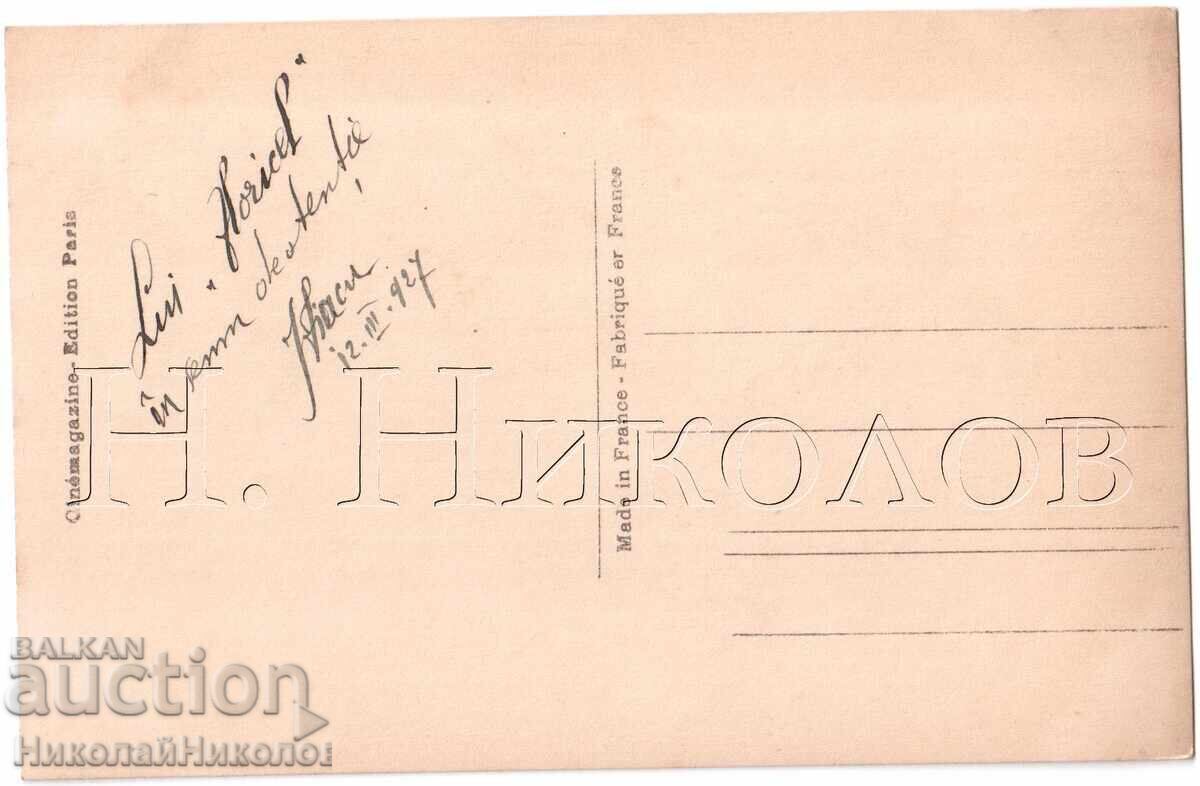 Cinémagazine - Edition Paris
Lui "Floricel"
în semn de atenție
12.III.927
Made in France - Fabriqué en France
Н. Николов
BALKAN
auction
НиколайНиколов